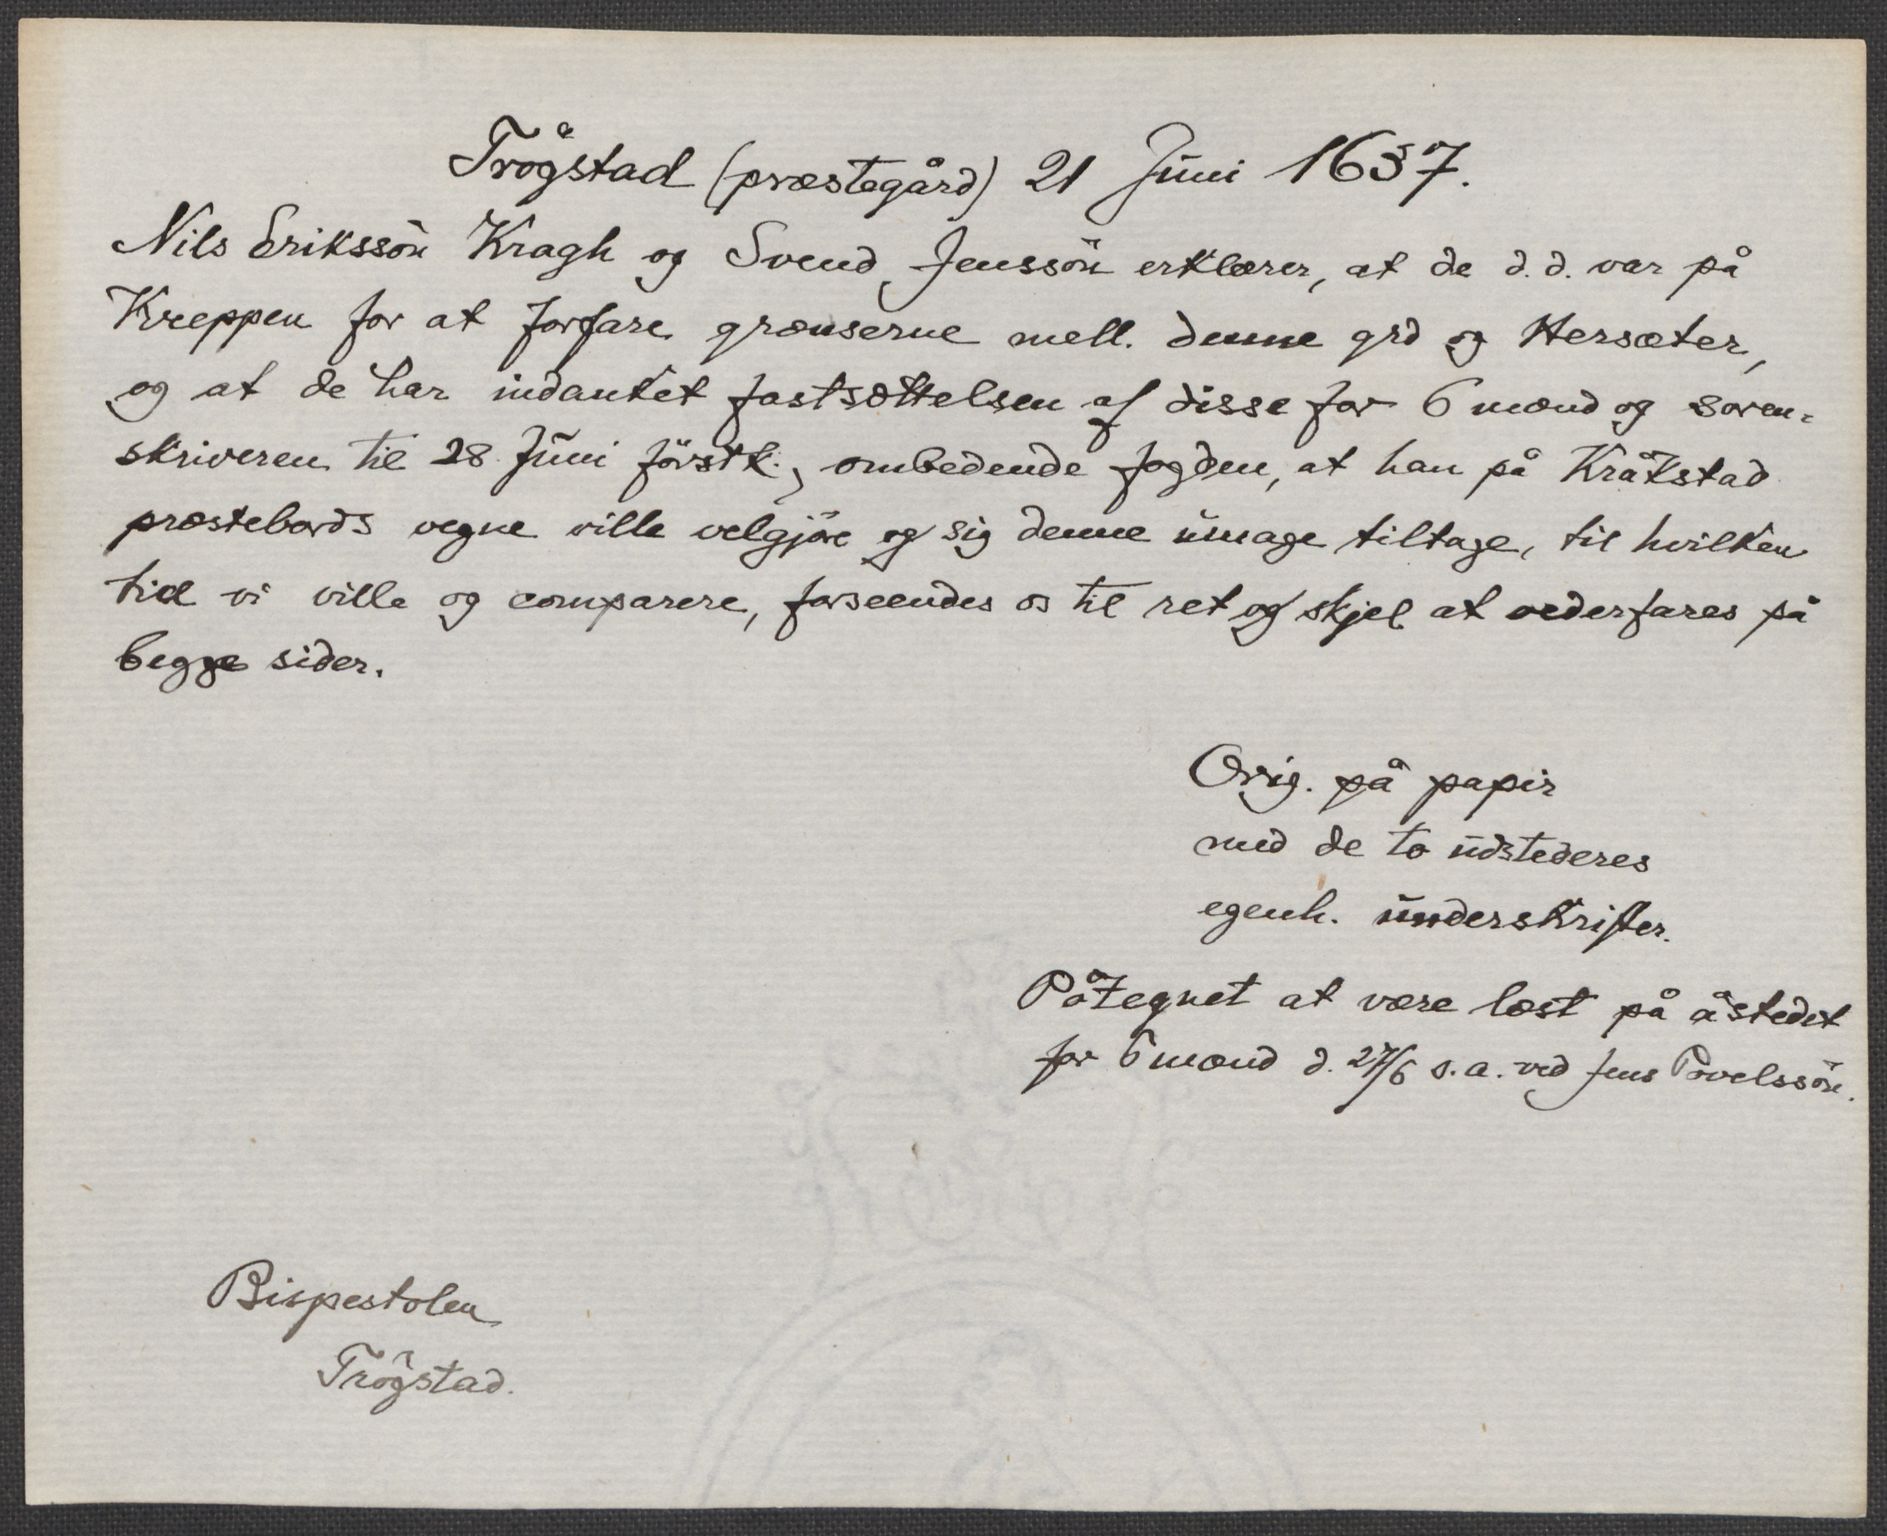 Trögstad (præstegård) 21 Juni 1657.
Nils Erikssön Kragh og Svend Jenssön erklærer, at de d.d. var på
Kreppen for at forfare grænserne mell. denne grd og Hersæter,
og at de har indanket fastsættelsen af disse for 6 mænd og soren-
skriveren til 28 Juni förstk., ombedende fogden, at han på Kråkstad
præstebords vegne ville velgjöre og sig denne umage tiltage, til hvilken
tid vi ville og comparere, forseendes os til ret og skjel at vederfares på
begge sider.
Orig. på papir
med de to udstederes
egenh. underskrifter.
Påtegnet at være læst på åstedet
for 6 mænd d. 27/6 s.a. ved Jens Povelssön.
Bispestolen
Trögstad.